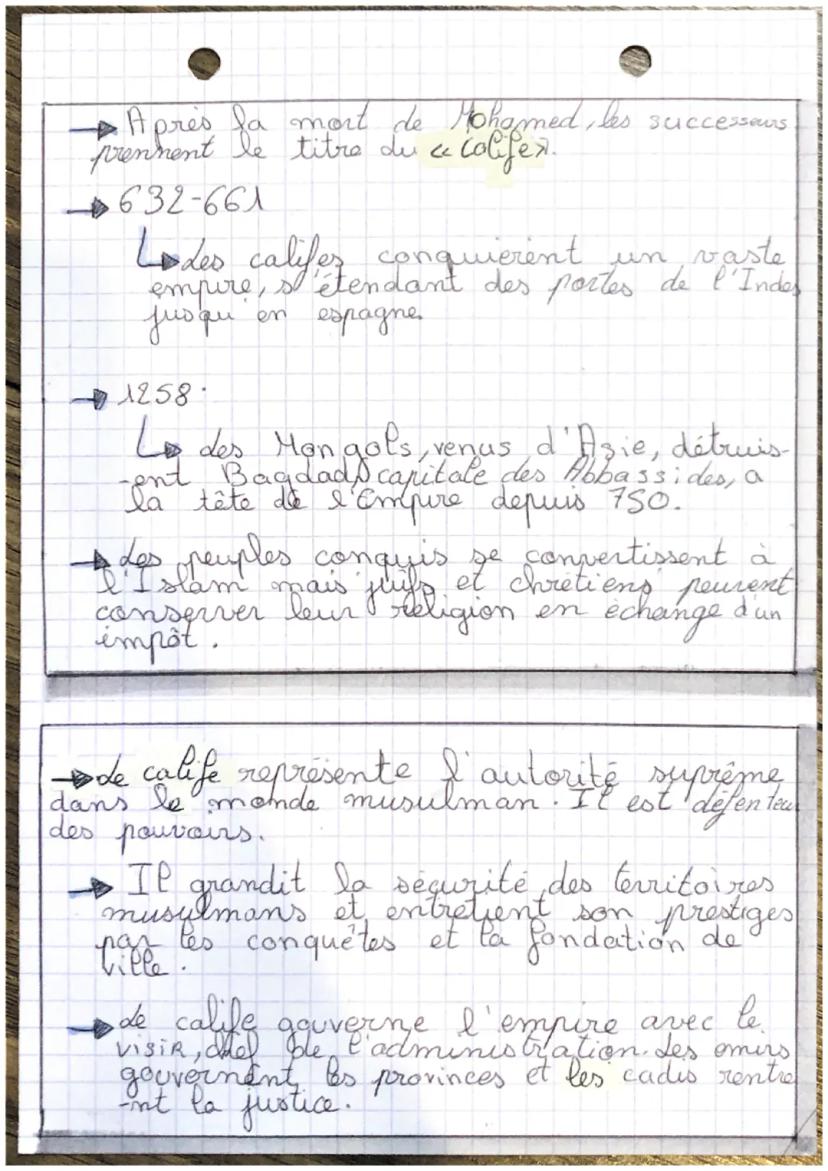 → Après la mort de Mohamed, les successeurs
prennent le titre du « calife ».
→ 632-661
↳ des califes conquièrent un vaste
empire, s'étendant des portes de l'Indes
jusqu'en espagne
→ 1258.
↳ des Mongols, venus d'Asie, détruis-
-ent Bagdad, capitale des Abbassides, a
la tête de l'Empire depuis 750.
→ Les peuples conquis se convertissent à
l'Islam mais juifs et chrétiens peuvent
conserver leur religion en échange d'un
impôt.
→ Le calife représente l'autorité suprême
dans le monde musulman. Il est défenteur
des pouvoirs.
→ Il grandit la sécurité des territoires
musulmans et entretient son prestiges
par les conquêtes et la fondation de
ville.
→ Le calife gouverne l'empire avec le
visir, chef de l'administration. Les emirs
gouvernent les provinces et les cadis rentre
-nt la justice.